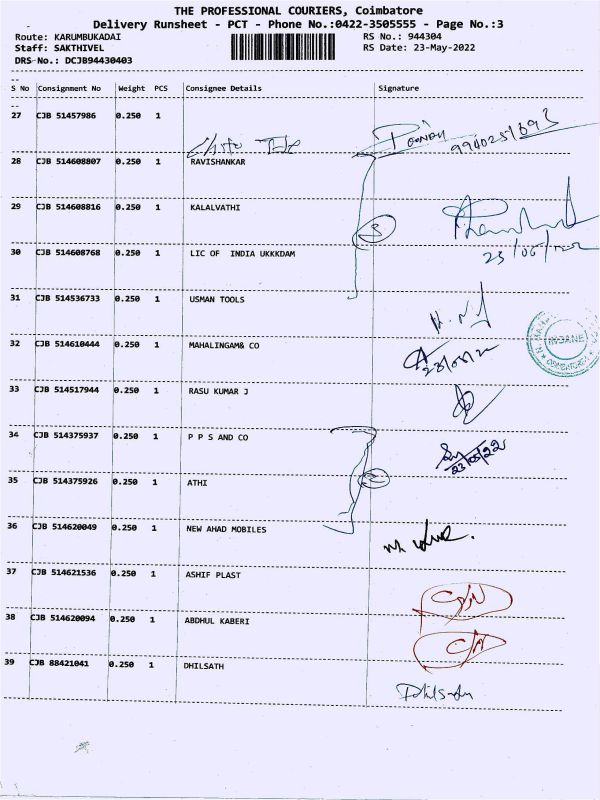 THE PROFESSIONAL COURIERS, Coimbatore
Delivery Runsheet - PCT - Phone No.:0422-3505555 - Page No.:3
Route: KARUMBUKADAI RS No.: 944304
Staff: SAKTHIVEL RS Date: 23-May-2022
DRS No.: DCJB94430403
S No Consignment No Weight PCS Consignee Details Signature
27 CJB 51457986 0.250 1
9940251693
28 CJB 514608807 0.250 1 RAVISHANKAR
29 CJB 514608816 0.250 1 KALALVATHI
3
23/05/2022
30 CJB 514608768 0.250 1 LIC OF INDIA UKKKDAM
31 CJB 514536733 0.250 1 USMAN TOOLS
32 CJB 514610444 0.250 1 MAHALINGAM& CO
23/05/22
33 CJB 514517944 0.250 1 RASU KUMAR J
34 CJB 514375937 0.250 1 P P S AND CO
23/05/22
35 CJB 514375926 0.250 1 ATHI
36 CJB 514620049 0.250 1 NEW AHAD MOBILES
37 CJB 514621536 0.250 1 ASHIF PLAST
38 CJB 514620094 0.250 1 ABDHUL KABERI
39 CJB 88421041 0.250 1 DHILSATH
Dhilsath